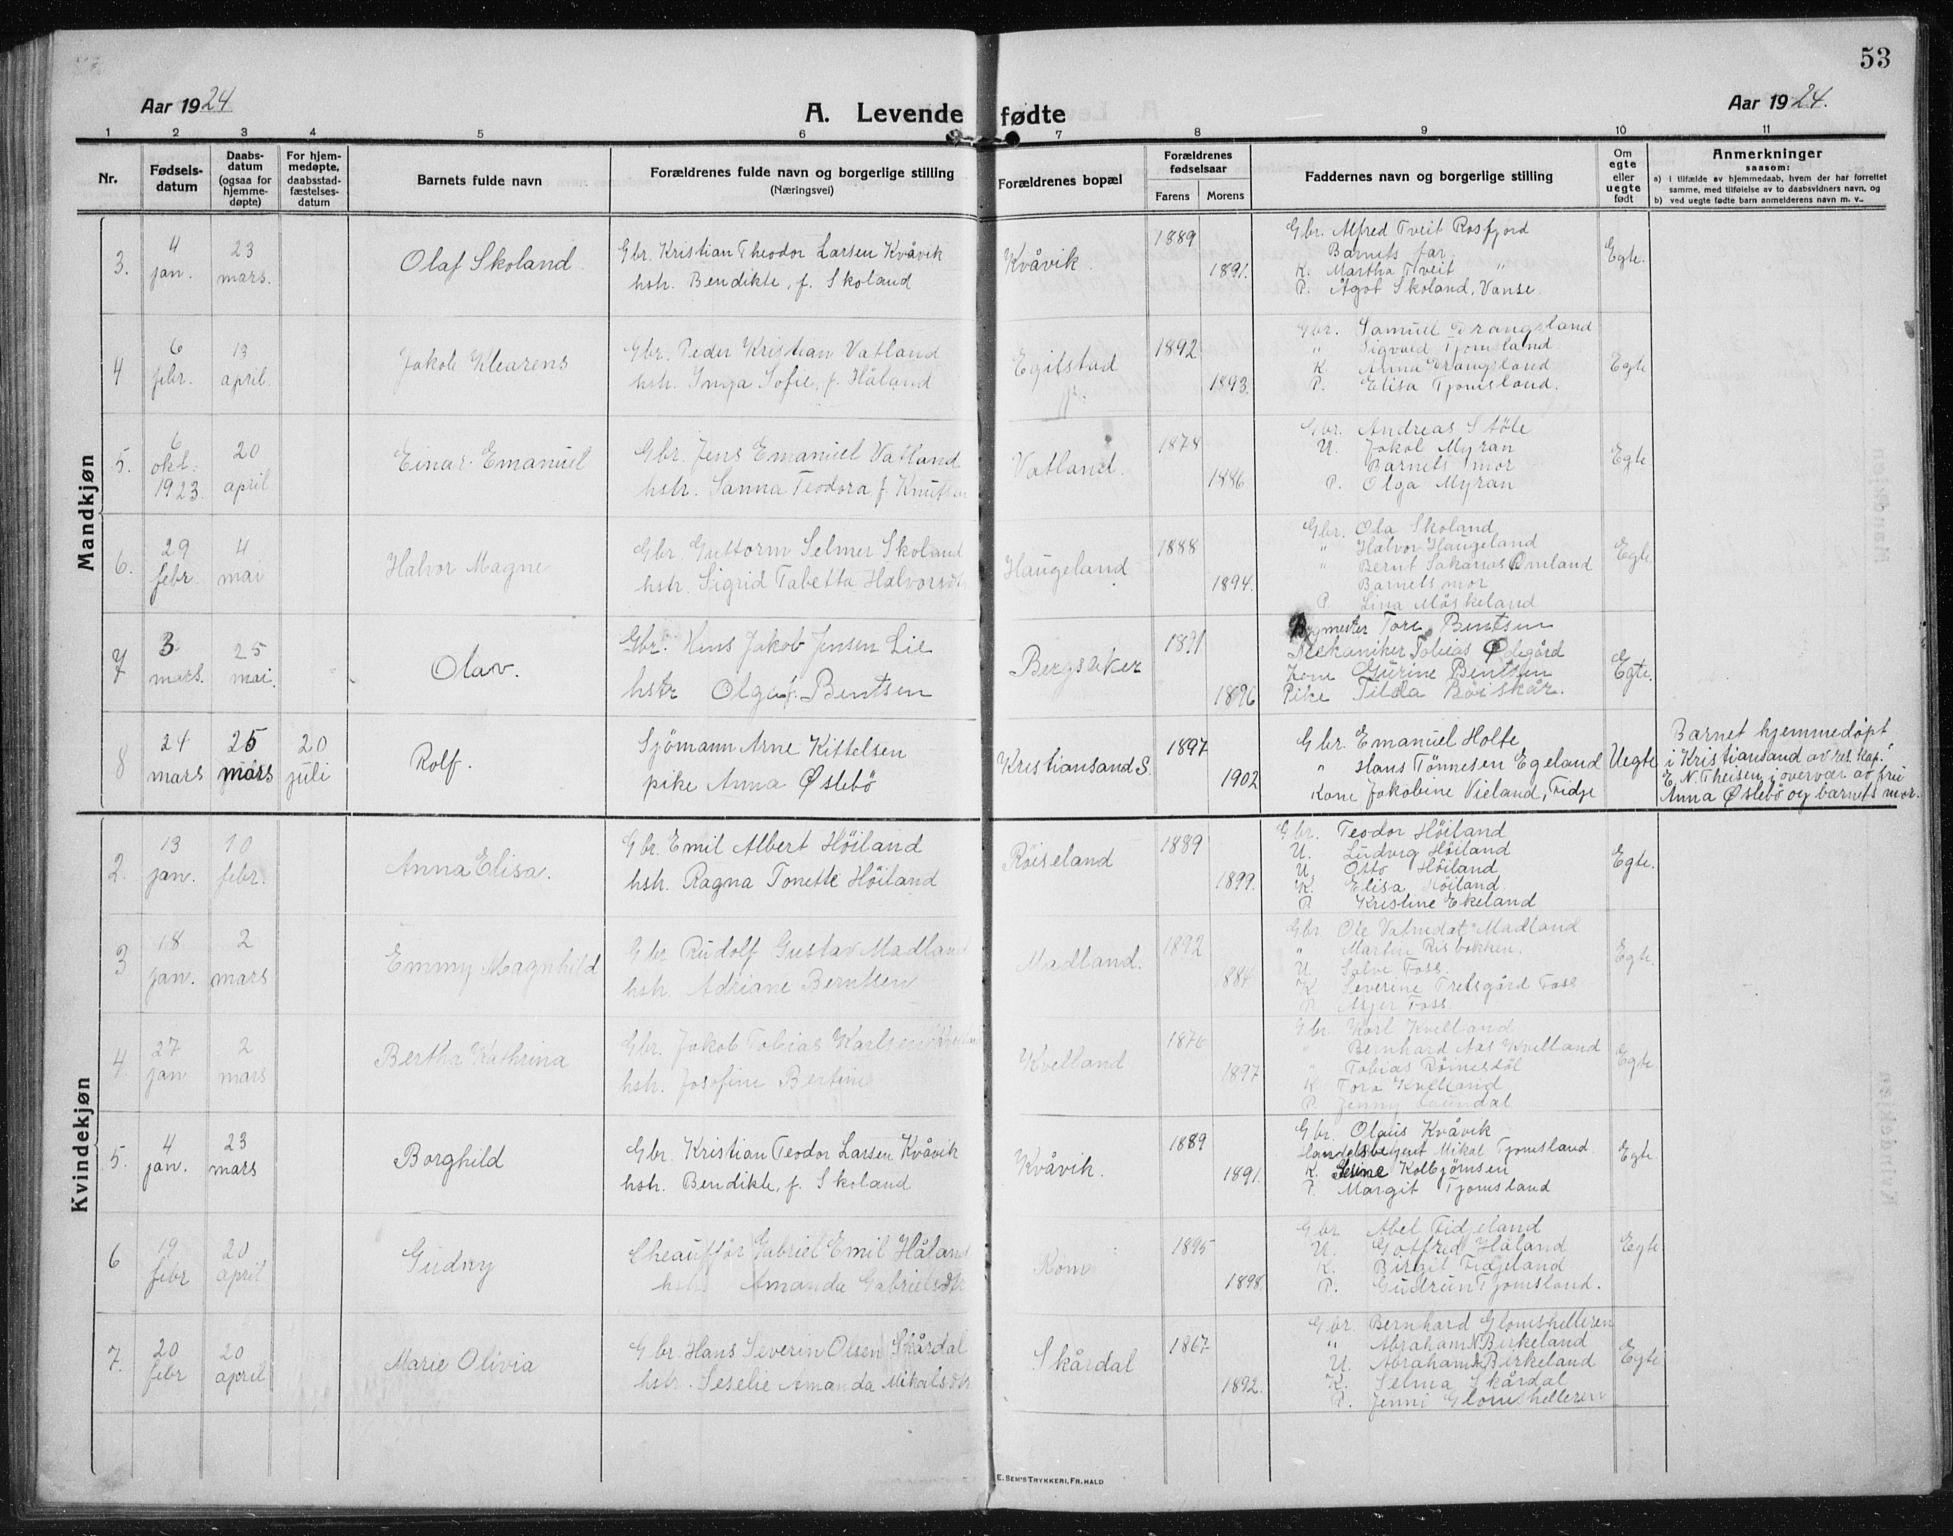 53
Aar 1924
A. Levende fødte
Aar 1924.
1 2 3 4 5 6 7 8 9 10 11
Nr.
Fødsels-
datum
Daabs-
datum
(ogsaa for
hjemme-
døpte)
For hjem-
medøpte,
daabsstad-
fæstelses-
datum
Barnets fulde navn
Forældrenes fulde navn og borgerlige stilling
(Næringsvei)
Forældrenes bopæl
Forældrenes
fødselsaar
Farens Morens
Faddernes navn og borgerlige stilling
Om
egte
eller
uegte
født
Anmerkninger
saasom:
a) i tilfælde av hjemmedaab, hvem der har forrettet
samme, med tilføielse av to daabsvidners navn, og
b) ved uegte fødte barn anmelderens navn m. v..
Mandkjøn
3.
4
jan.
23
mars.
Olaf Skoland
Gbr. Kristian Theodor Larsen Kvåvik
hstr. Bendikte, f. Skoland
Kvåvik.
1889
1891.
Gbr. Alfred Tveit Rosfjord
Barnets far.
K. Martha Tveit "
P. Ågot Skoland, Vanse.
Egte.
4
6
febr.
13
april.
Jakob Klearens
Gbr. Peder Kristian Vatland
hstr. Inga Sofie, f. Håland
Egilstad
1892
1893.
Gbr. Samuel Drangsland
" Sigvald Tjomsland
K. Anna Drangsland
P. Elisa Tjomsland.
Egte
5.
6
okt.
1923.
20
april
Einar Emanuel
Gbr. Jens Emanuel Vatland
hstr. Sanna Teodora f. Knutsen
Vatland.
1878
1886
Gbr. Andreas Støle
U. Jakob Myran
Barnets mor
P. Olga Myran
Egte
6.
29
febr.
4
mai
Halvor Magne
Gbr. Guttorm Selmer Skoland
hstr. Sigrid Tabetta Halvorsdt.
Haugeland
1888
1894.
Gbr. Ola Skoland
" Halvor Haugeland
" Bernt Sakarias Omland
Barnets mor
P. Lina Møskeland
Egte
7
3
mars.
25
mai.
Olav.
Gbr. Hans Jakob Jensen Lie
hstr Olga f. Bentsen
Bergsaker
1891
1896
Bygmester Tore Bentsen
Mekaniker Tobias Ødegård
Kone Gurine Bentsen
Pike Tilda Røiskår.
Egte.
8
24
mars
25
mars
20
juli
Rolf.
Sjømann Arne Kittelsen
pike Anna Øslebø
Kristiansand S.
1897
1902
Gbr. Emanuel Holte
" Hans Tønnesen Egeland
Kone Jakobine Vieland, Fidje
Uegte
Barnet hjemmedøpt
i Kristiansand av res. kap.
E. N. Theisen i overvær av fru
Anna Øslebø og barnets mor.
Kvindekjøn
2.
13
jan.
10
febr.
Anna Elisa.
Gbr. Emil Albert Høiland
hstr. Ragna Tonette Høiland
Røiseland
1889
1899.
Gbr. Teodor Høiland
U. Ludvig Høiland
U. Otto Høiland
K. Elisa Høiland
P. Kristine Ekeland
Egte.
3
18
jan.
2
mars
Emmy Magnhild
Gbr Rudolf Gustav Madland
hstr. Adriane Berntsen
Madland.
1892
1884
Gbr Ole Valmdal Madland
" Martin Risbakken.
U. Salve Foss.
K Severine Tretsgård Foss
P. Asjer Foss
Egte.
4.
27
jan
2
mars
Bertha Kathrina
Gbr. Jakob Tobias Karlsen Kvelland
hstr. Josefine Bertine
Kvelland
1876
1897
Gbr Karl Kvelland
" Bernhard Aas Kvelland
" Tobias Rømesdøl
K Tora Kvelland
P. Jenny
Egte.
5.
4
jan.
23
mars
Borghild
Gbr. Kristian Teodor Larsen Kvåvik
hstr. Bendikte, f. Skoland
Kvåvik.
1889
1891.
Gbr. Olaus Kvåvik
Handelsbetjent Mikal Tjomsland
K. Kolbjørnsen
P. Margit Tjomsland
Egte.
6
19
febr
20
april
Gudny
Cheauffør Gabriel Emil Håland
hstr Amanda Gabrielsdtr
Kom
1895
1898.
Gbr Abel Fidjeland
U. Gotfred Håland
K. Birgit Fidjeland
P. Gudrun Tjomsland.
Egte
7.
20
febr
20
april
Marie Olivia
Gbr. Hans Severin Olsen Skårdal
hstr. Seselie Amanda Mikalsdtr
Skårdal
1867.
1892.
Gbr. Bernhard Glomshelleren
" Abraham N Birkeland
U. Abraham A Birkeland
K. Selma Skårdal
P. Jenni Glomshelleren
Egte
E. SEM'S TRYKKERI, FR.HALD